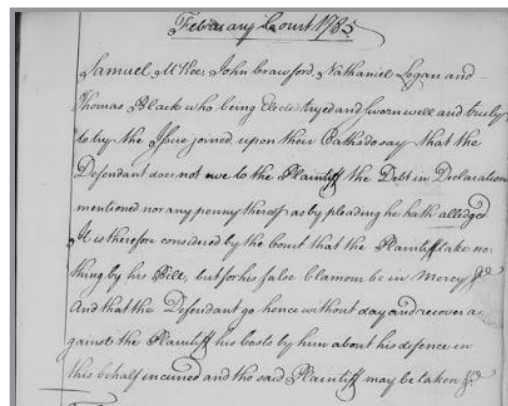 February Court 1785
Samuel McKee, John Crawford, Nathaniel Logan and
Thomas Black who being Elected tryed and sworn well and truly
to try the Issue joined upon their Oaths do say that the
Defendant does not owe to the Plaintiff the Debt in Declaration
mentioned nor any penny thereof as by pleading he hath alledged.
It is therefore considered by the Court that the Plaintiff take no-
thing by his Bill, but for his false Clamom be in Mercy &c
And that the Defendant go hence without day and recover a-
gainst the Plaintiff his Costs by him about his defence in
this behalf incurred and the said Plaintiff may be taken &c